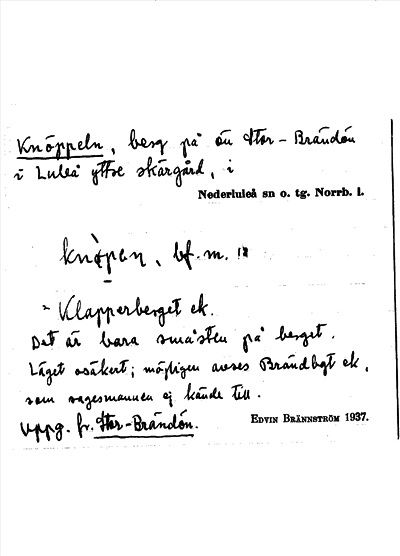 Knöppeln, berg på ön Stor-Brändön
i Luleå yttre skärgård, i
Nederluleå sn o. tg. Norrb. l.
bf. m.
Klapperberget ek.
Det är bara småsten på berget.
Läget osäkert; möjligen avses Brändbgt ek,
som sagesmannen ej kände till.
Uppg. fr. Stor-Brändön.
EDVIN BRÄNNSTRÖM 1937.